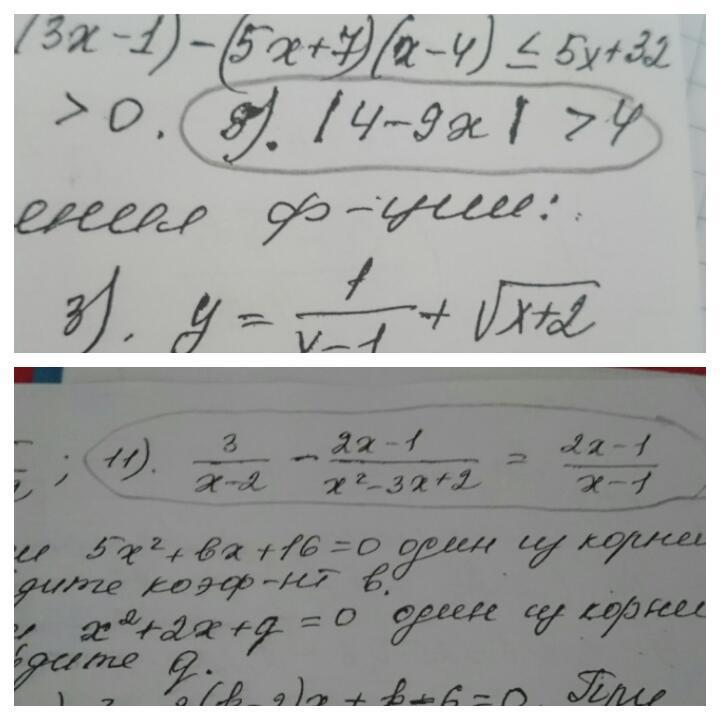 (3x-1)-(5x+7)(x-4) ≤ 5x+32
>0. 8). |4-9x| >4
ения ф-ции:
3). y = 1/(x-1) + √(x+2)
; 11). 3/(x-2) - (2x-1)/(x²-3x+2) = (2x-1)/(x-1)
5x²+bx+16=0 один из корней
дите коэф-нт b.
x²+2x+q=0 один из корней
дите q.
(k-2)x+k+6=0. При